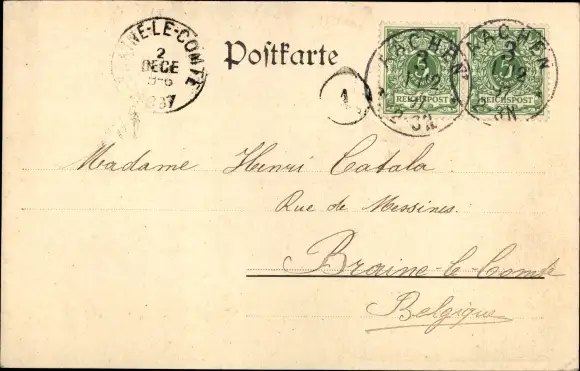 BRAINE-LE-COMTE
2
DECE
Postkarte
1
AACHEN
5
REICHSPOST
AACHEN
3
REICHSPOST
Madame Henri Catala
Rue de Messines.
Braine-le-Comte
Belgique